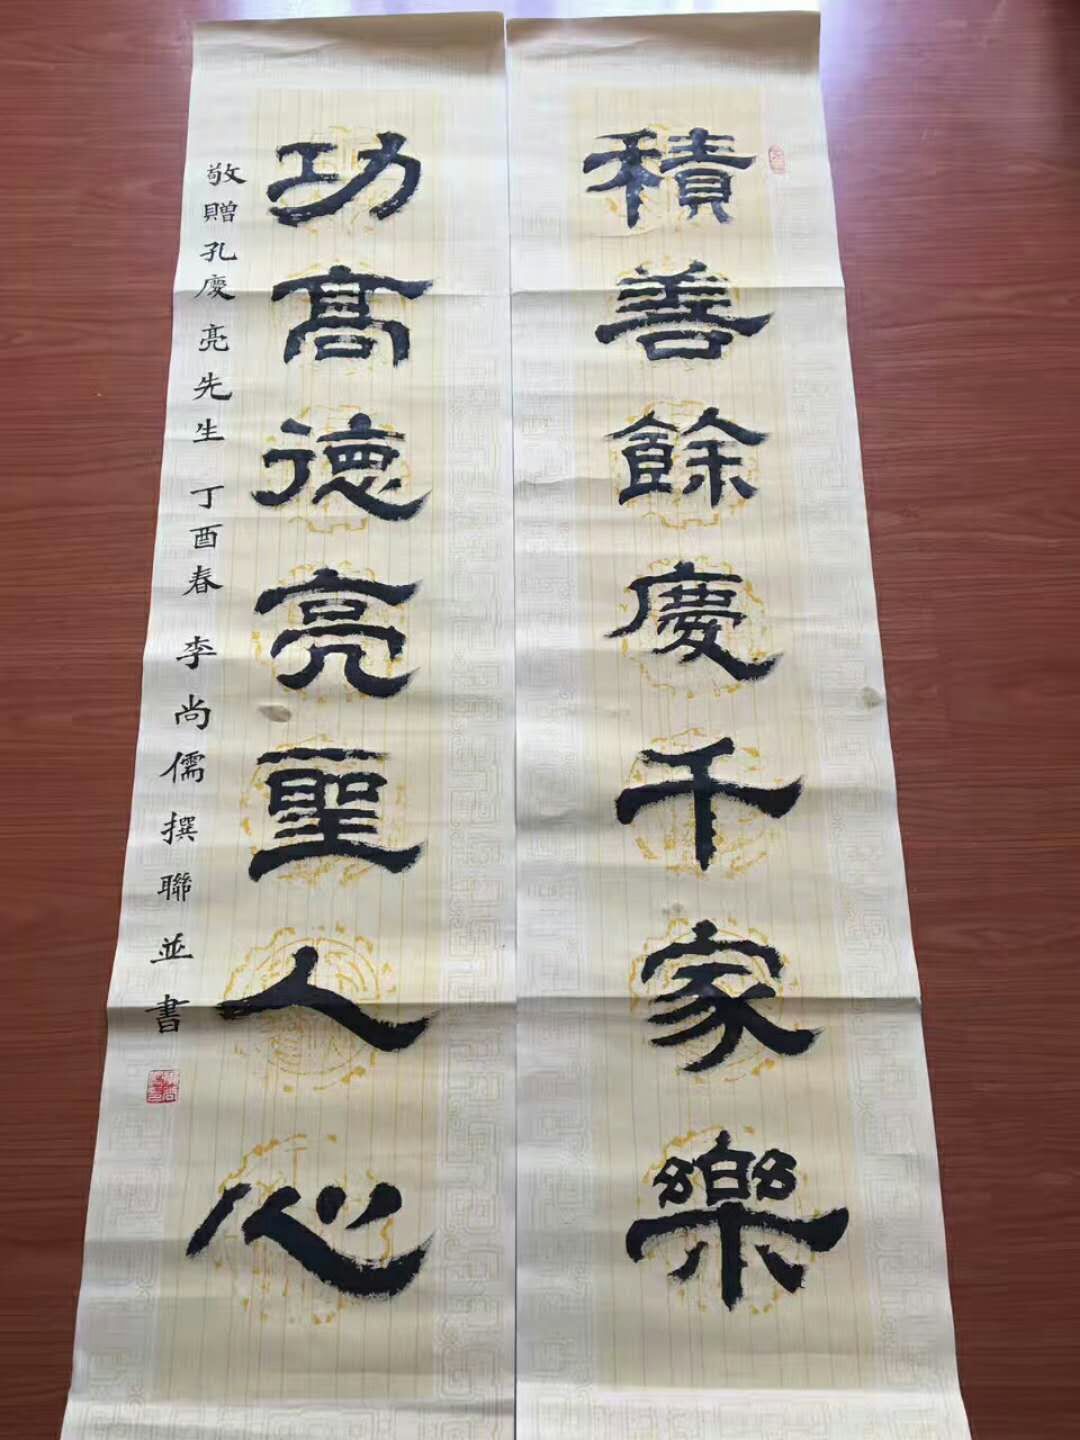 積善餘慶千家樂
功高德亮聖人心
敬贈孔慶亮先生 丁酉春 李尚儒撰聯並書